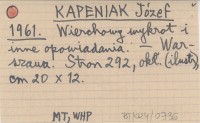 KAPENIAK Józef
1961. Wierchowy wykrot i
inne opowiadania. — War-
szawa. Stron 292, okł. (ilustr.)
cm 20 × 12.
MT, WHP